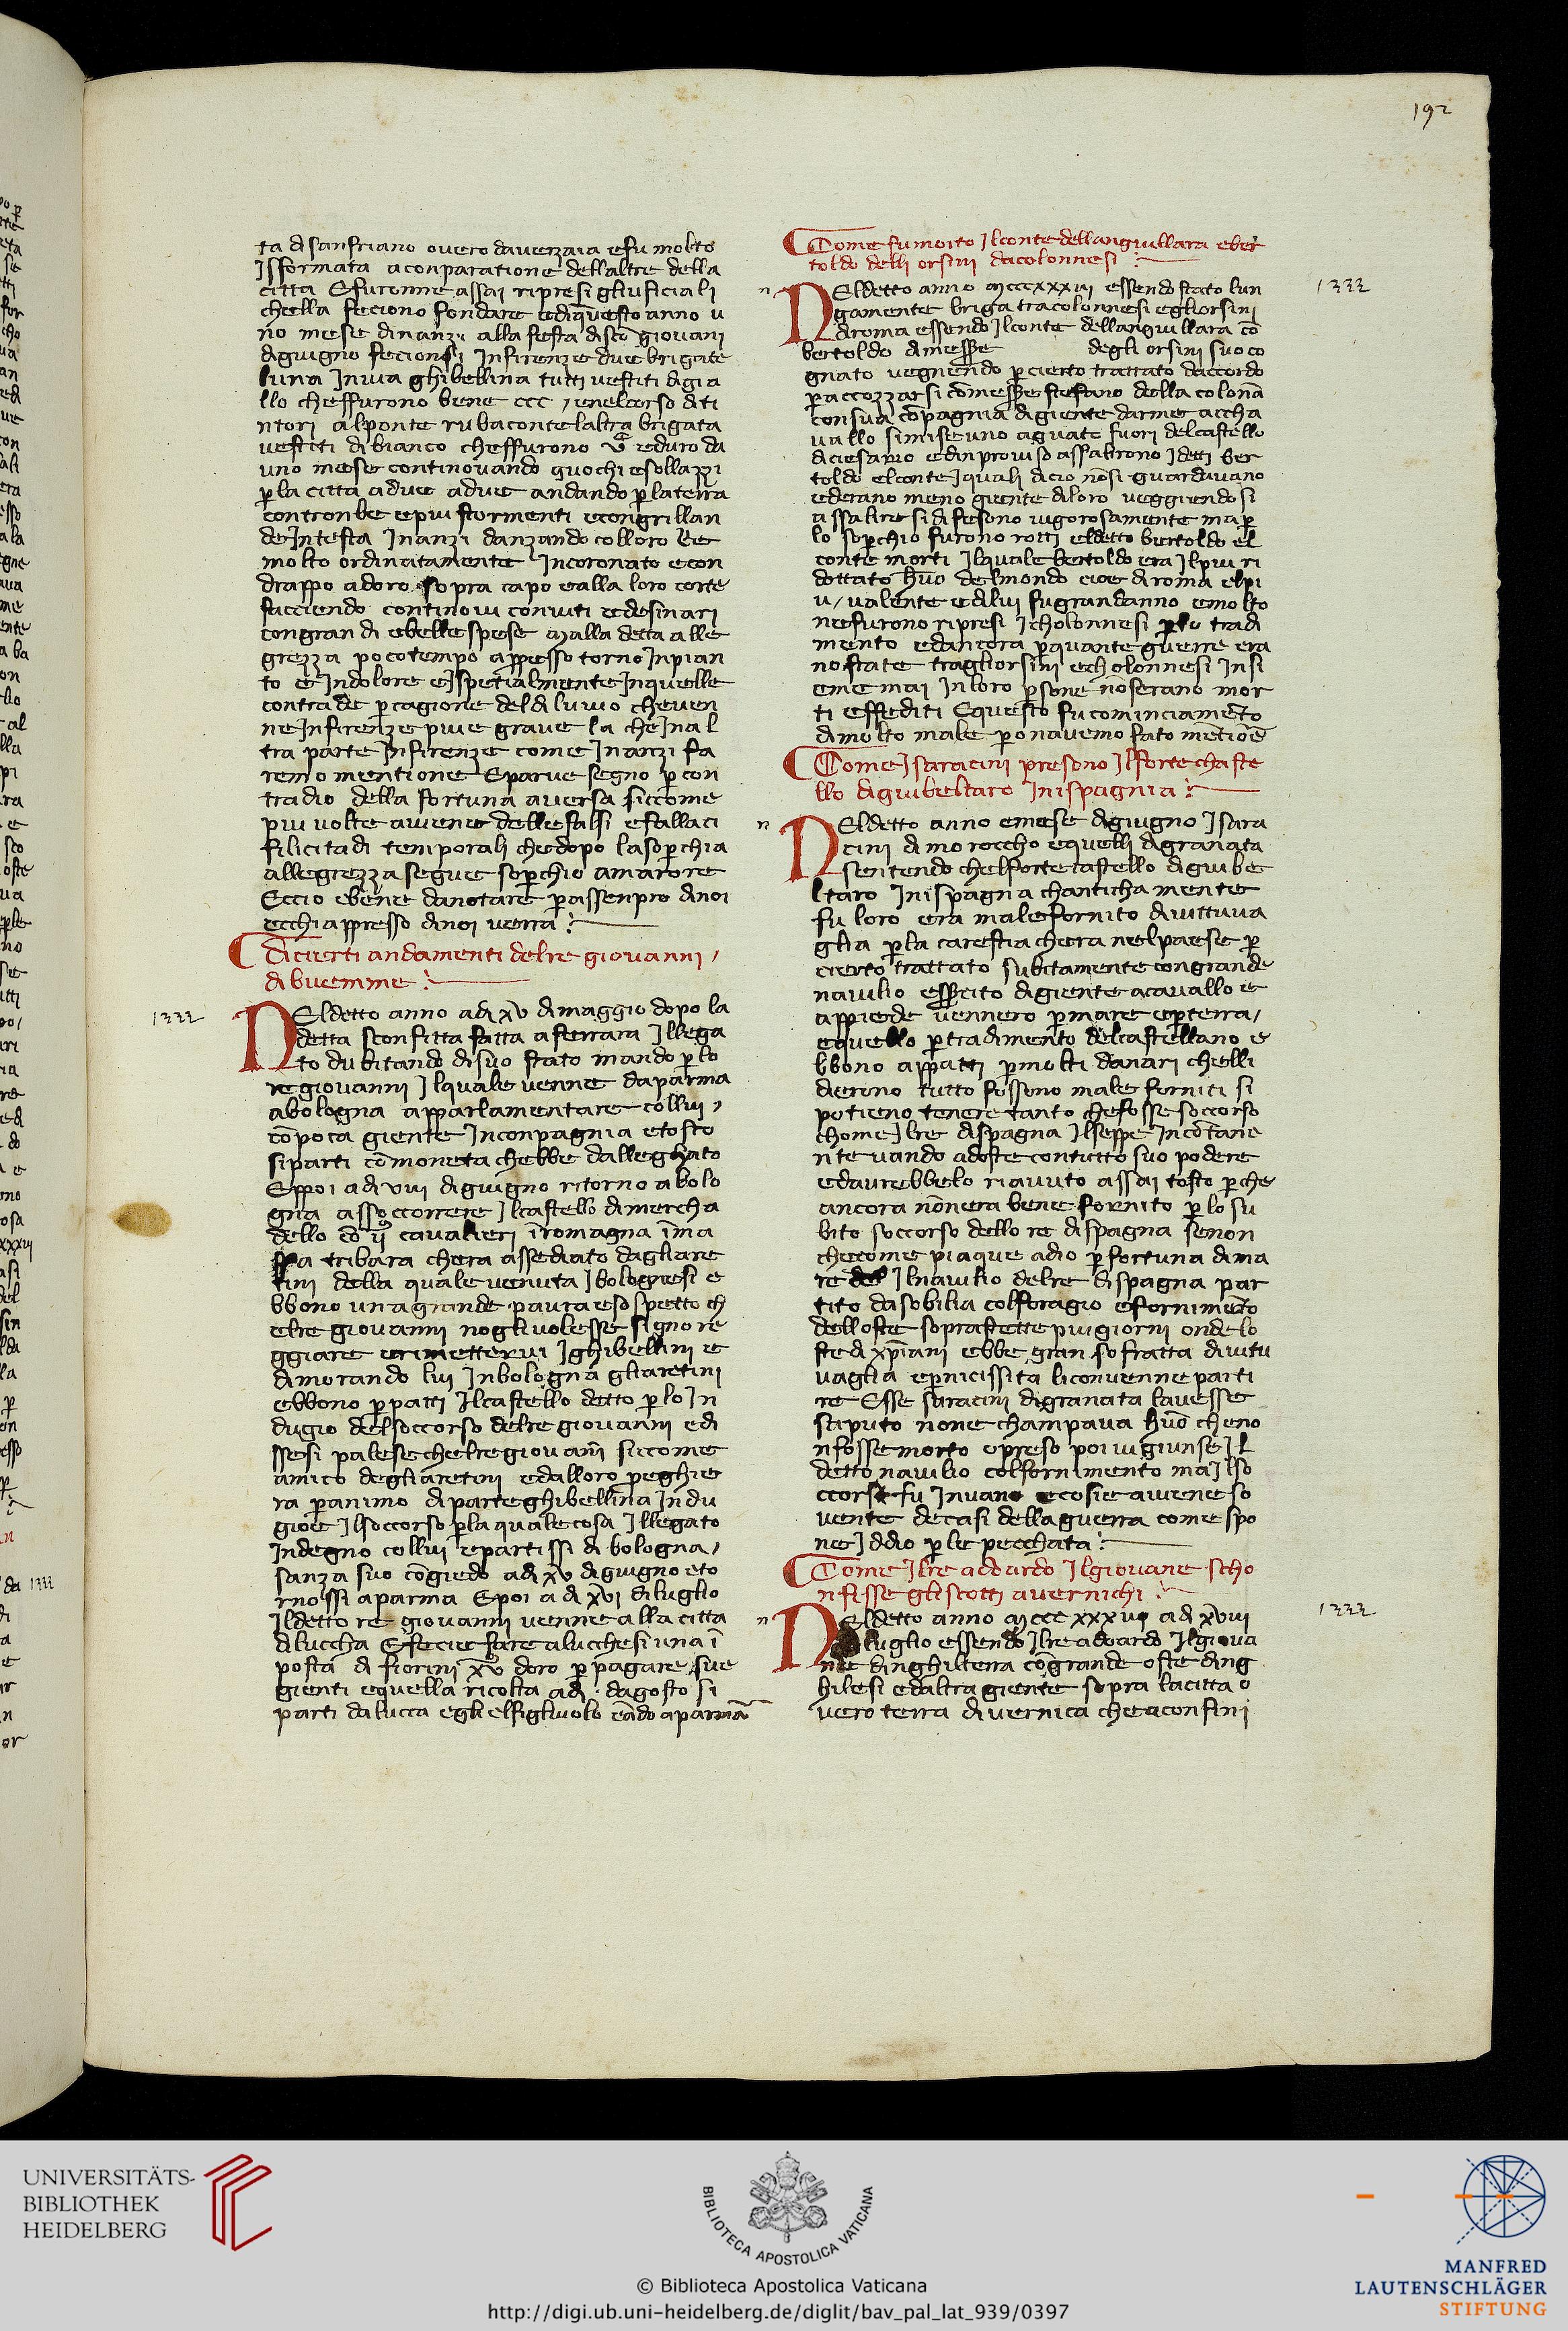 192
ta di sanfriano overo da verzaia e fu molto
Isformata a conparatione dellaltre della
citta Efuronne assai ripresi gliuficiali
chella feciono fondare edinquesto anno u
no mese dinanzi alla festa di sco giovani
digiugno fecionsi Infirenze due brigate
luna In via ghibellina tutti vestiti digia
llo cheffurono bene ccc / enelcorso diti
ntori alponte rubaconte laltra brigata
vestiti di bianco cheffurono vc e duro da
uno mese continovando giuochi e sollazzi
p la citta adue adue andando p laterra
contronbe epiu stormenti econgrillan
de Intesta Inanzi danzando colloro Re
molto ordinatamente Incoronato econ
drappo adoro sopra capo ealla loro corte
facciendo continovi conviti edesinari
congrandi ebelle spese Malla detta alle
grezza poco tempo appresso torno Inpian
to e Indolore e Ispetialmente Inquelle
contrade p cagione del diluvio cheven
ne Infirenze piue grave la che Inal
tra parte Infirenze come Inanzi fa
remo mentione Eparve segno p con
tradio della fortuna aversa siccome
piu volte aviene delle falsi efallaci
filicitadi temporali chedopo lasopchia
allegrezza segue sopchio amarore
Eccio ebene danotare p assenpro dinoi
ecchi appresso dinoi verra
Dicierti andamenti delre giovanni /
dibuemme
1333
Neldetto anno adi xv dimaggio dopo la
detta sconfitta fatta a ferrara Illega
to dubitando disuo stato mando p lo
re giovanni Ilquale venne da parma
abologna apparlamentare collui /
co poca giente Inconpagnia etosto
siparti co moneta chebbe dalleghato
Eppoi adi viii digiugno ritorno abolo
gna assoccorrere Ilcastello dimercha
dello co ii cavalieri i romagna i ma
ssa tribara chera assediato dagliare
tini della quale venuta I bolognesi e
bbono una grande paura e sospetto ch
elre giovanni no gli volesse signore
ggiare erimettervi I ghibellini e
dimorando lui Inbologna gliaretini
ebbono p patti Ilcastello detto p lo In
dugio delsoccorso delre giovanni edi
ssesi palese chelre giovani siccome
amico degliaretini e dalloro peghie
ra p animo diparte ghibellina Indu
gioe Ilsoccorso p la quale cosa Illegato
Indegno collui epartissi di bologna /
sanza suo cogiedo adi xv digiugno eto
rnossi a parma Epoi adi xvi diluglio
Ildetto re giovanni venne alla citta
diluccha Effecie fare alucchesi una i
posta di fiorini xv doro p pagare sue
gienti equella ricolta adi . dagosto si
parti dalucca egli elfigliuolo eando a parma
Come fu morto Ilconte dellanguillara eber
toldo delli orsini dacolonnesi
1333
n Neldetto anno Mcccxxxiii essendo stato lun
gamente briga tracolonnesi egliorsini
diroma essendo Ilconte dellanguillara co
bertoldo dimesse degli orsini suo co
gnato vegniendo p cierto trattato daccordo
p accozzarsi co messe stefano della colona
con sua copagnia digiente darme accha
vallo simise uno aguato fuori delcastello
diciesario edinproviso assalirono I detti ber
toldo elconte I quali dicio nosi guardavano
ederano meno giente diloro veggiendosi
assalire si difesono vigorosamente ma p
lo sopchio furono rotti eldetto bertoldo el
conte morti Ilquale bertoldo era Ilpiu ri
dottato huo delmondo cioe diroma elpi
u / valente edilui fu grandanno e molto
ne furono ripresi I cholonnesi p lo tradi
mento edancora p quante guerre era
no state tragliorsini echolonnesi Insi
eme mai Inloro p sone noserano mor
ti effediti Equesto fu cominciameto
dimolto male p onavemo fato metione
Come I saracini presono Ilforte chaste
llo digiubeltaro Inispagnia
n Neldetto anno emese digiugno I sara
cini di moroccho equelli digranata
sentendo chelforte castello digiube
ltaro Inispagna chantichamente
fu loro era male fornito divittuva
glia p la carestia chera nelpaese p
cierto trattato subitamente con grande
navilio essercito digiente acavallo e
appiede vennero p mare ep terra /
equello p tradimento delcastellano e
bbono appatti p molti danari chelli
dierono tutto fossono male forniti si
potieno tenere tanto chefosse soccorso
chome Ilre dispagna Ilseppe Incotane
nte vando adoste contutto suo podere
edaurebbelo riavuto assai tosto p che
ancora nonera bene fornito p lo su
bito soccorso dello re dispagna senon
checome piaque adio p fortuna dima
re Ilnavilio delre dispagna par
tito da sobilia colforagio efornimeto
delloste soprastette piu giorni onde lo
ste di xpiani ebbe gran sofratta divitu
vaglia ep nicissita liconvenne parti
re Esse saracini digranata lavesse
saputo none champava huo cheno
nfosse morto opreso poi vi giunse Il
detto navilio colfornimento ma Ilso
ccorso fu Invano ecosie aviene so
vente decasi della guerra come spo
ne Iddio p le pecchata
Come Ilre adoardo Ilgiovane scho
nfisse gliscotti avernichi
1333
n Neldetto anno Mcccxxxiii adi xviii
diluglio essendo Ilre adoardo Ilgiova
ne dinghilterra co grande oste ding
hilesi edaltra giente sopra lacitta o
vero terra divernica che aconfini
UNIVERSITÄTS-
BIBLIOTHEK
HEIDELBERG
BIBLIOTECA APOSTOLICA VATICANA
© Biblioteca Apostolica Vaticana
http://digi.ub.uni-heidelberg.de/diglit/bav_pal_lat_939/0397
MANFRED
LAUTENSCHLÄGER
STIFTUNG